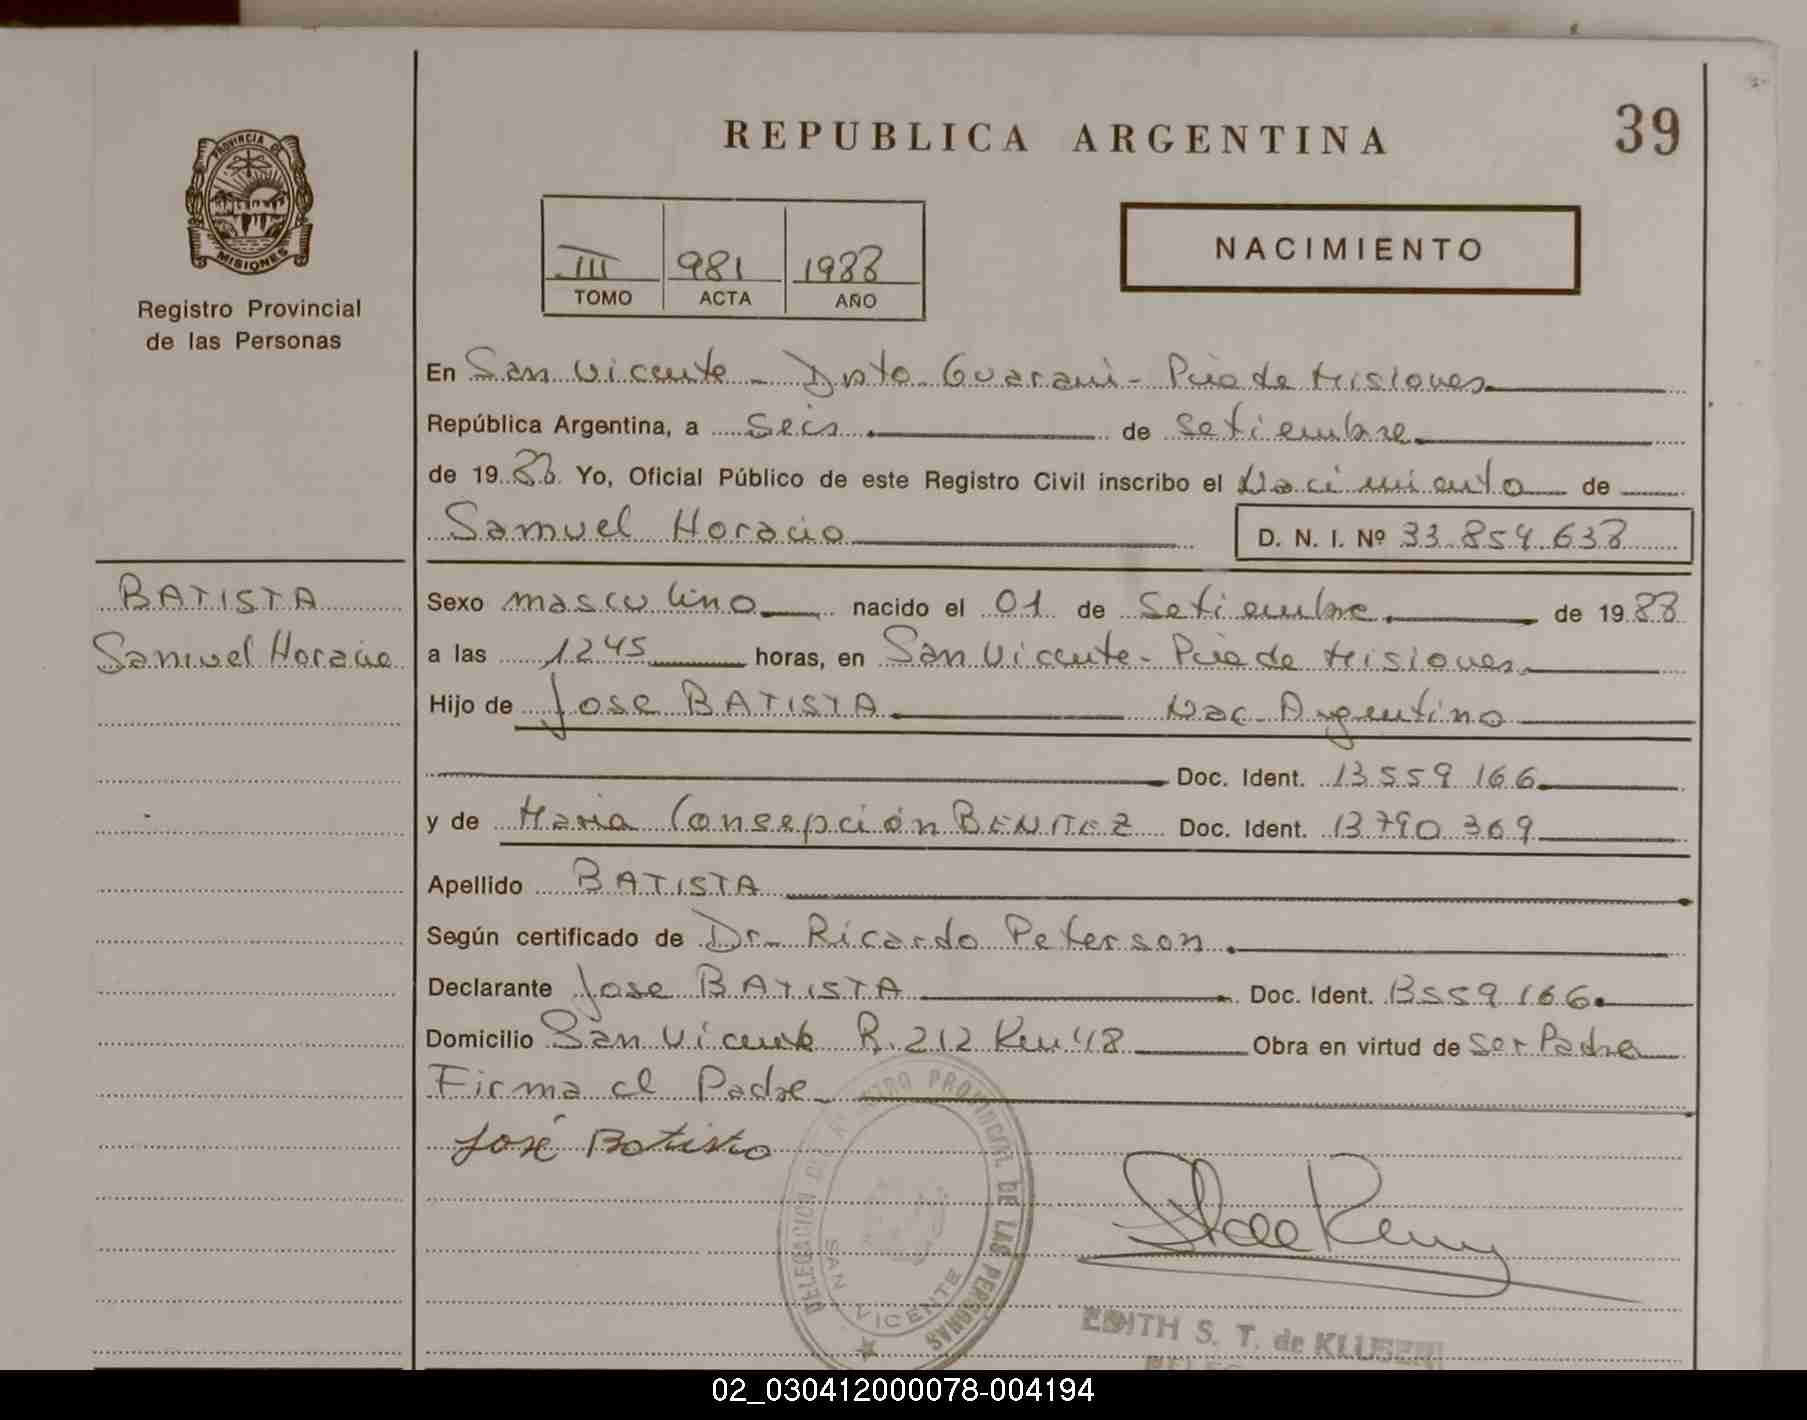 REPUBLICA ARGENTINA
39
PROVINCIA DE
MISIONES
Registro Provincial
de las Personas
III 981 1988
TOMO ACTA AÑO
NACIMIENTO
En San Vicente - Dpto Guarani - Pcia de Misiones
República Argentina, a Seis de Setiembre
de 19 88 Yo, Oficial Público de este Registro Civil inscribo el Nacimiento de
Samuel Horacio D. N. I. Nº 33.854.638
BATISTA
Samuel Horacio
Sexo masculino nacido el 01 de Setiembre de 19 88
a las 1245 horas, en San Vicente - Pcia de Misiones
Hijo de Jose BATISTA Nac. Argentino
Doc. Ident. 13.559.166
y de Maria Consepción BENITEZ Doc. Ident. 13790.369
Apellido BATISTA
Según certificado de Dr. Ricardo Peterson.
Declarante Jose BATISTA Doc. Ident. 13559.166.
Domicilio San Vicente R. 212 Km 48 Obra en virtud de Ser Padre
Firma el Padre
José Batista
DELEGACION DEL REGISTRO PROVINCIAL DE LAS PERSONAS
SAN VICENTE
EDITH S. T. de
02_030412000078-004194